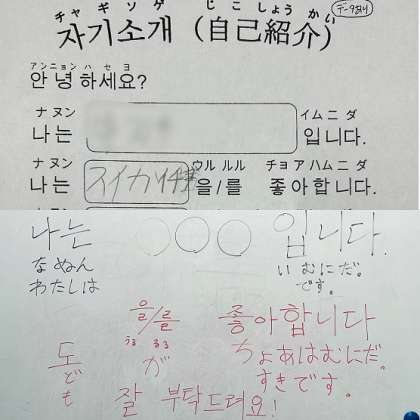 チャギソゲ じこしょうかい
자기소개 (自己紹介)
アンニョン ハセヨ
안녕하세요?
ナヌン イムニダ
나는 입니다.
ナヌン ウル ルル チョアハムニダ
나는 スイカ 을/를 좋아합니다.
나는 ○○○ 입니다.
なぬん いむにだ。
わたしは です。
을/를 좋아합니다
うる るる ちょあはむにだ。
도 が すきです。
ども 잘 부탁드려요!